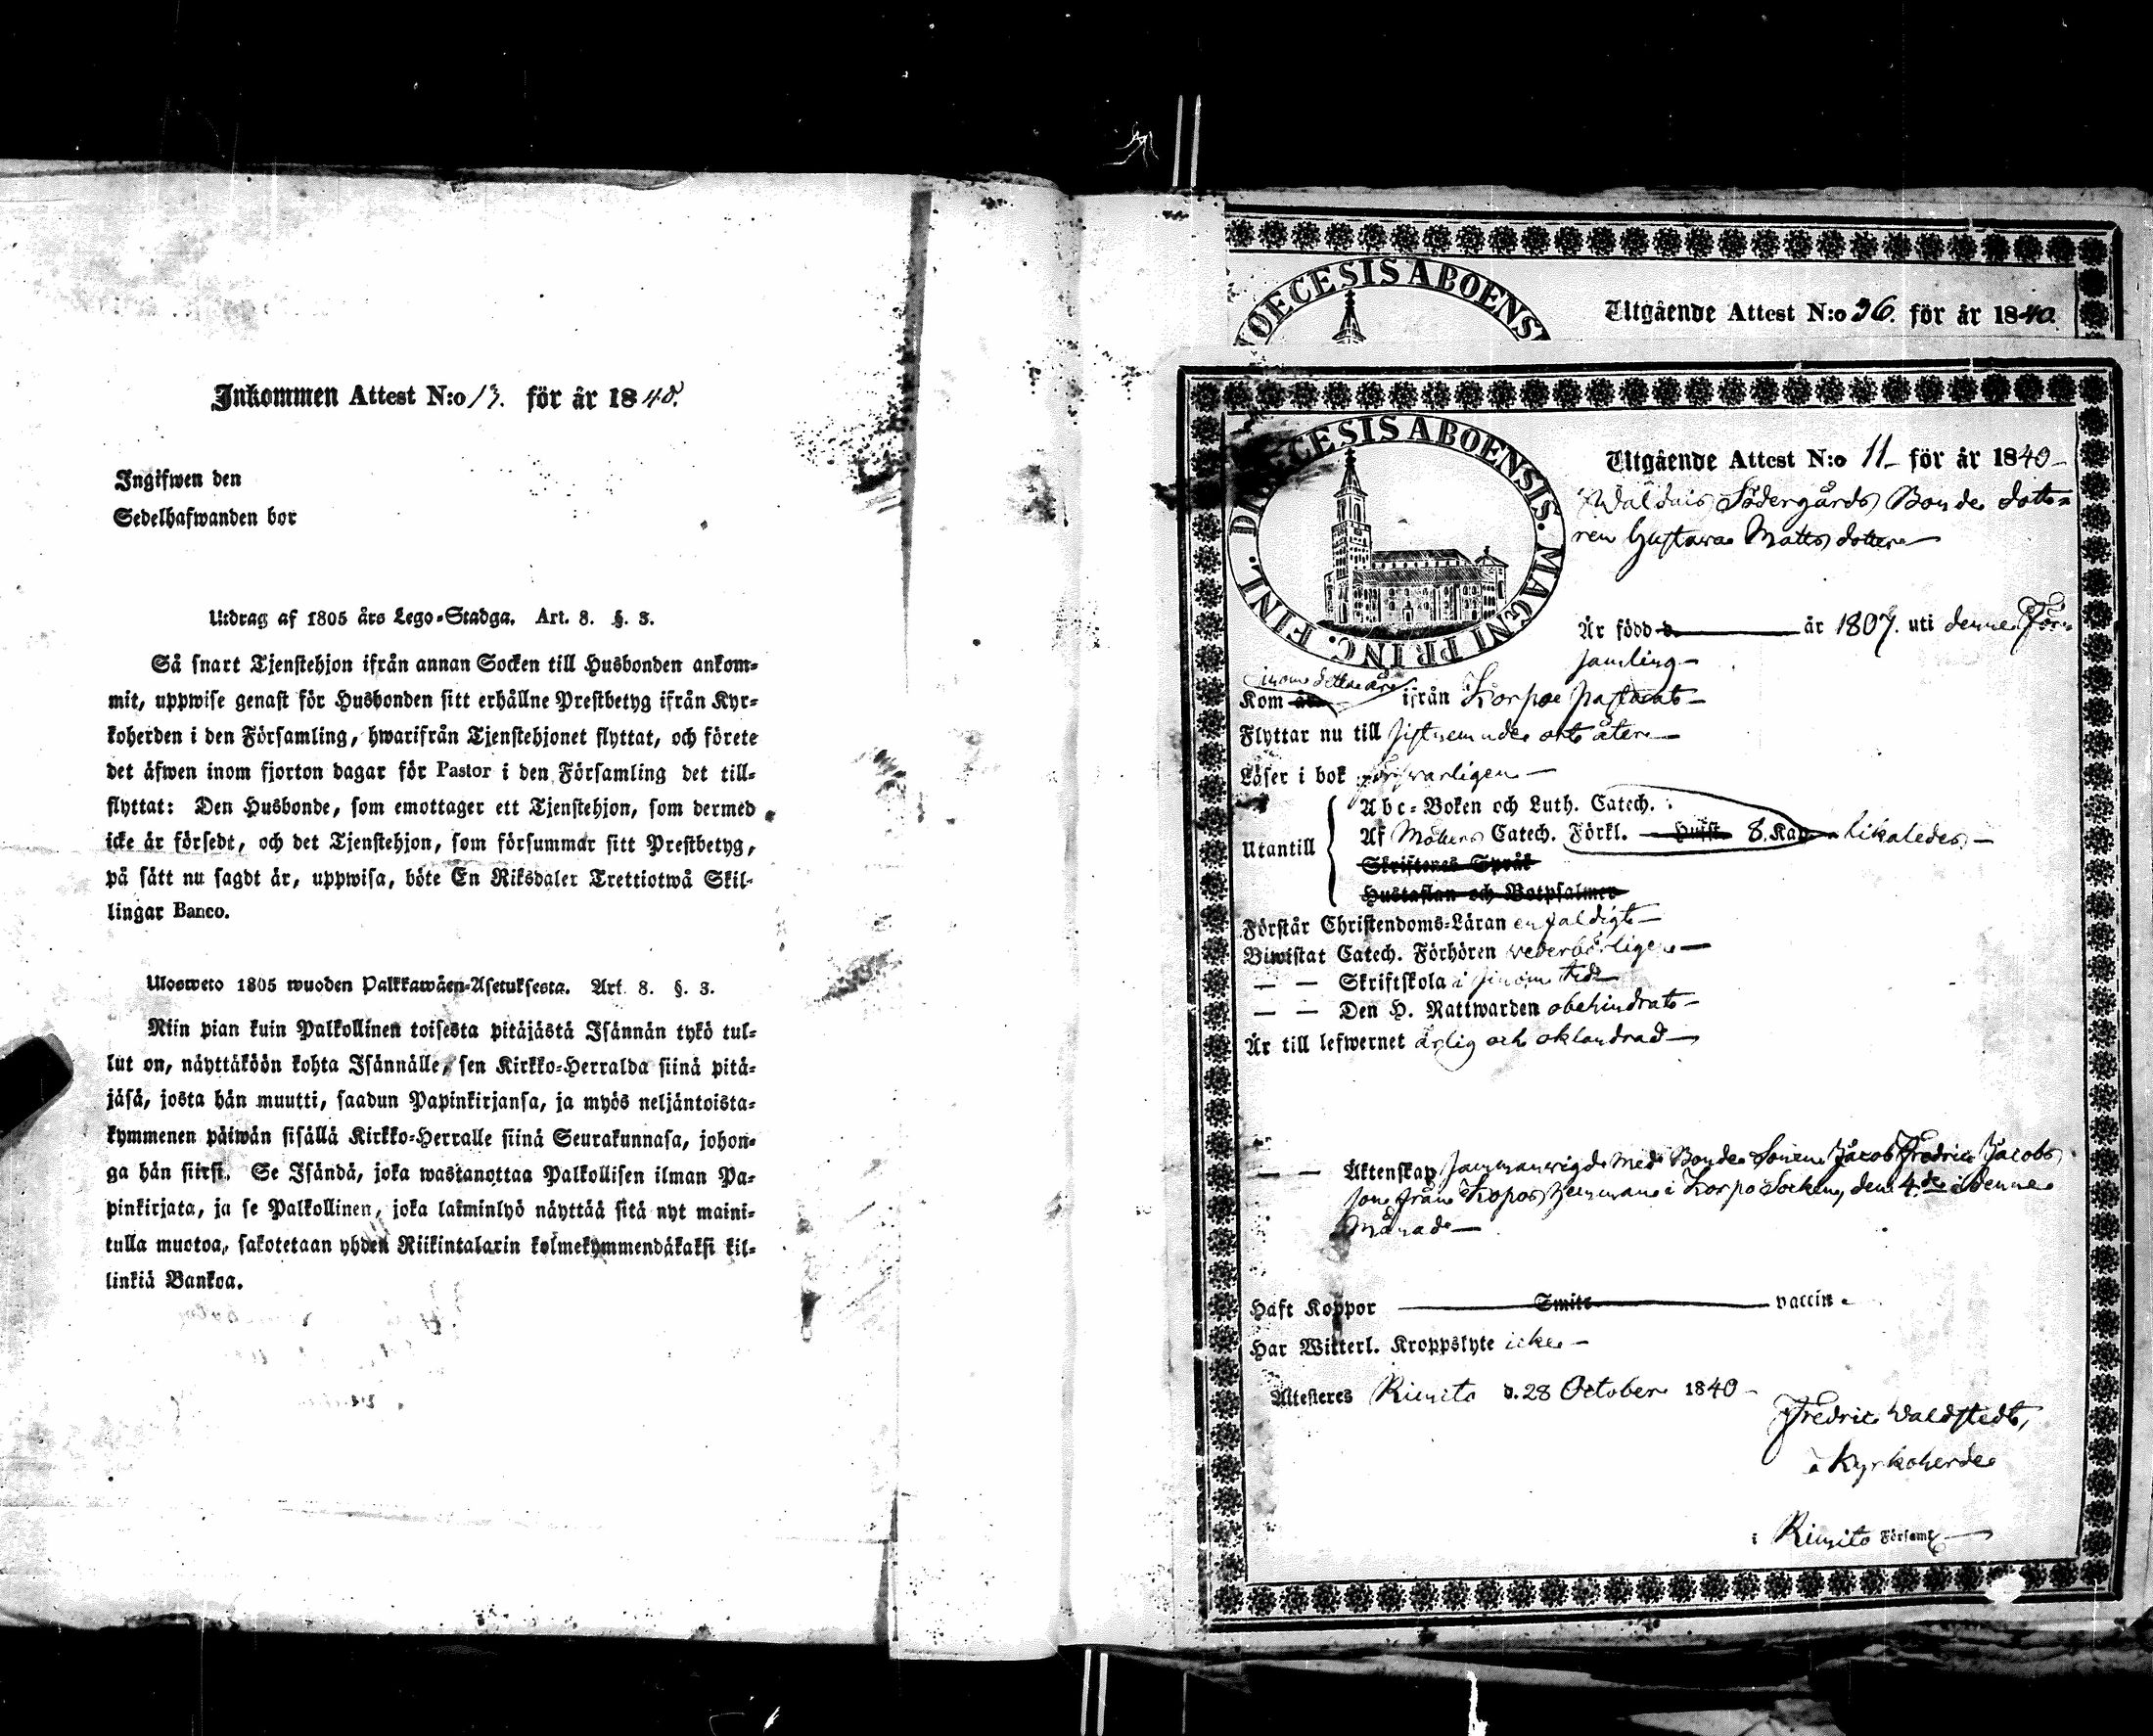 Inkommen Attest N:o 13. för år 1840.
Ingifwen den
Sedelhafwanden bor
Utdrag af 1805 års Lego-Stadga. Art. 8. §. 3.
Så snart Tjenstehjon ifrån annan Socken till Husbonden ankom-
mit, uppwise genast för Husbonden sitt erhållne Prestbetyg ifrån Kyr-
koherden i den Församling, hwarifrån Tjenstehjonet flyttat, och förete
det äfwen inom fjorton dagar för Pastor i den Församling det till-
flyttat: Den Husbonde, som emottager ett Tjenstehjon, som dermed
icke är försedt, och det Tjenstehjon, som försummar sitt Prestbetyg,
på sätt nu sagdt är, uppwisa, böte En Riksdaler Trettiotwå Skil-
lingar Banco.
Ulosweto 1805 wuoden Palkkawäen-Asetuksesta. Art. 8. §. 3.
Niin pian kuin Palkollinen toisesta pitäjästä Isännän tykö tul-
lut on, näyttäköön kohta Isännälle, sen Kirkko-Herralda siinä pitä-
jäsä, josta hän muutti, saadun Papinkirjansa, ja myös neljäntoista-
kymmenen päiwän sisällä Kirkko-Herralle siinä Seurakunnasa, johon-
ga hän siirsi. Se Isändä, joka wastanottaa Palkollisen ilman Pa-
pinkirjata, ja se Palkollinen, joka laiminlyö näyttää sitä nyt maini-
tulla muotoa, sakotetaan yhden Riikintalarin kolmekymmendäkaksi kil-
linkiä Bankoa.
DIOECESIS ABOENS
Utgående Attest N:o 36. för år 1840.
DIOECESIS ABOENSIS. MAGNI PRINC. FINL.
Utgående Attest N:o 11 - för år 1840 -
Södergårds Bonde dott=
ren Gustava Matts dotter
Är född d. år 1807. uti denne För-
samling -
inom detta år
Kom år ifrån Korpo Pastorat -
Flyttar nu till sistnemnde ort åter
Läser i bok försvarligen -
Utantill
Abc-Boken och Luth. Catech.
Af Möllers Catech. Förkl. Husst. 8. Kap. likaledes -
Skriftenes Språk
Hustaflan och Botpsalmer
Förstår Christendoms-Läran enfaldigt -
Biwistat Catech. Förhören vederbörligen -
— — Skriftskola i sinom tid
— — Den H. Nattwarden obehindrat -
Är till lefwernet ärlig och oklandrad -
— — Äktenskap sammanvigd med Bonde Sonen Jacob Fredric Jacobs
son från i Korpo Socken, den 4.de i denne
Månad -
Haft Koppor Smitt vaccin.
Har Witterl. Kroppslyte icke -
Attesteres Rimito d. 28 October 1840 -
Fredric Waldstedt,
Kyrkoherde
i Rimito Församl.